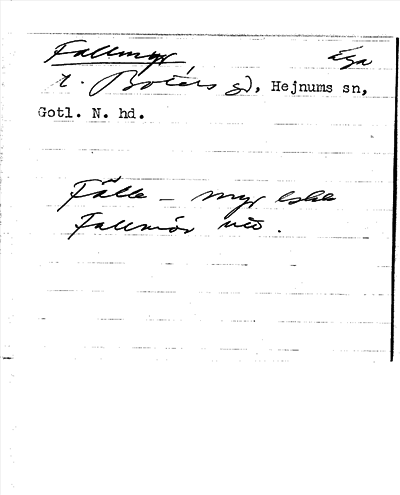 Fallmyr äga
t. Botérs gd, Hejnums sn,
Gotl. N. hd.
Fälle – myr
Fallmör